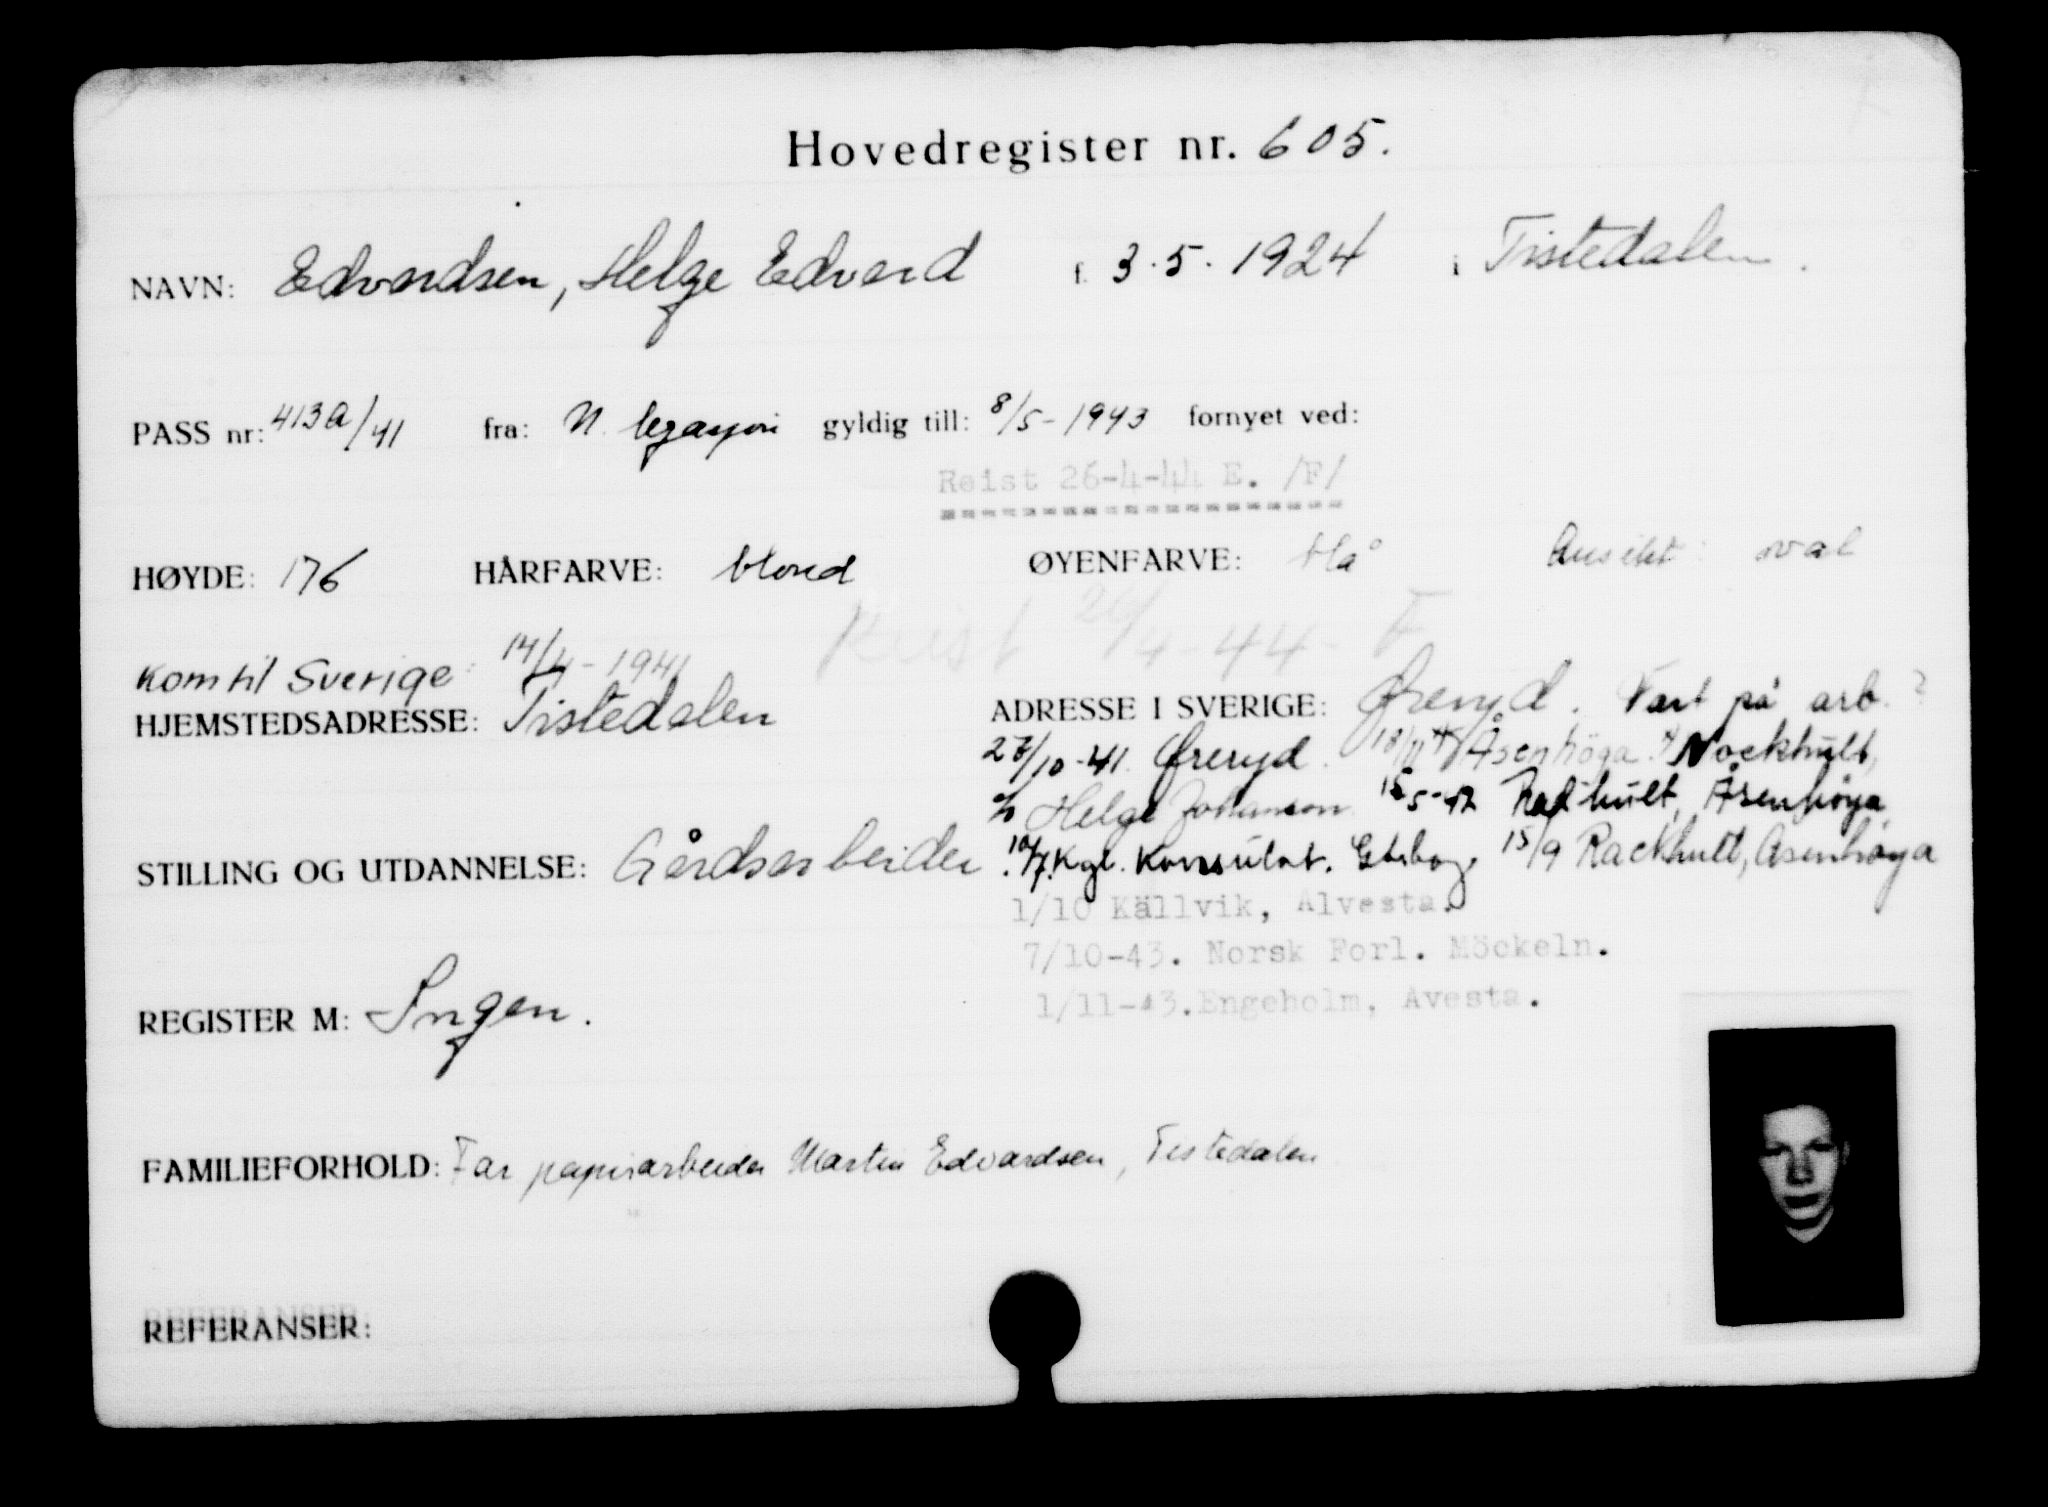 Hovedregister nr. 605.
NAVN: Edvardsen, Helge Edvard f. 3.5.1924 i Tistedalen.
PASS nr: 413a/41 fra: N. legasjon gyldig till: 8/5-1943 fornyet ved:
Reist 26-4-44 E. /F/
HØYDE: 176 HÅRFARVE: blond ØYENFARVE: blå Ansikt: oval
Reist 26/4-44- F
Kom til Sverige: 14/4-1941
HJEMSTEDSADRESSE: Tistedalen ADRESSE I SVERIGE: Øreryd. Vært på arb.?
27/10-41. Øreryd. 18/11 Åsenhöga. Nockhult,
c/o Helge Johansson 15-5-42 Rackhult, Åsenhöga,
STILLING OG UTDANNELSE: Gårdsarbeider. 10/7. Kgl. Konsulat. Gtebog. 15/9 Rackhult, Åsenhöga
1/10 Källvik, Alvesta.
7/10-43. Norsk Forl. Möckeln.
REGISTER M: Ingen. 1/11-43. Engeholm, Avesta.
FAMILIEFORHOLD: Far papirarbeider Martin Edvardsen, Tistedalen
REFERANSER: